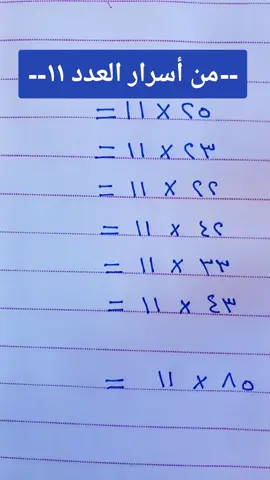 --من أسرار العدد ١١--
٢٥ × ١١ =
٢٣ × ١١ =
٢٢ × ١١ =
٤٢ × ١١ =
٣٣ × ١١ =
٤٣ × ١١ =
٨٥ × ١١ =